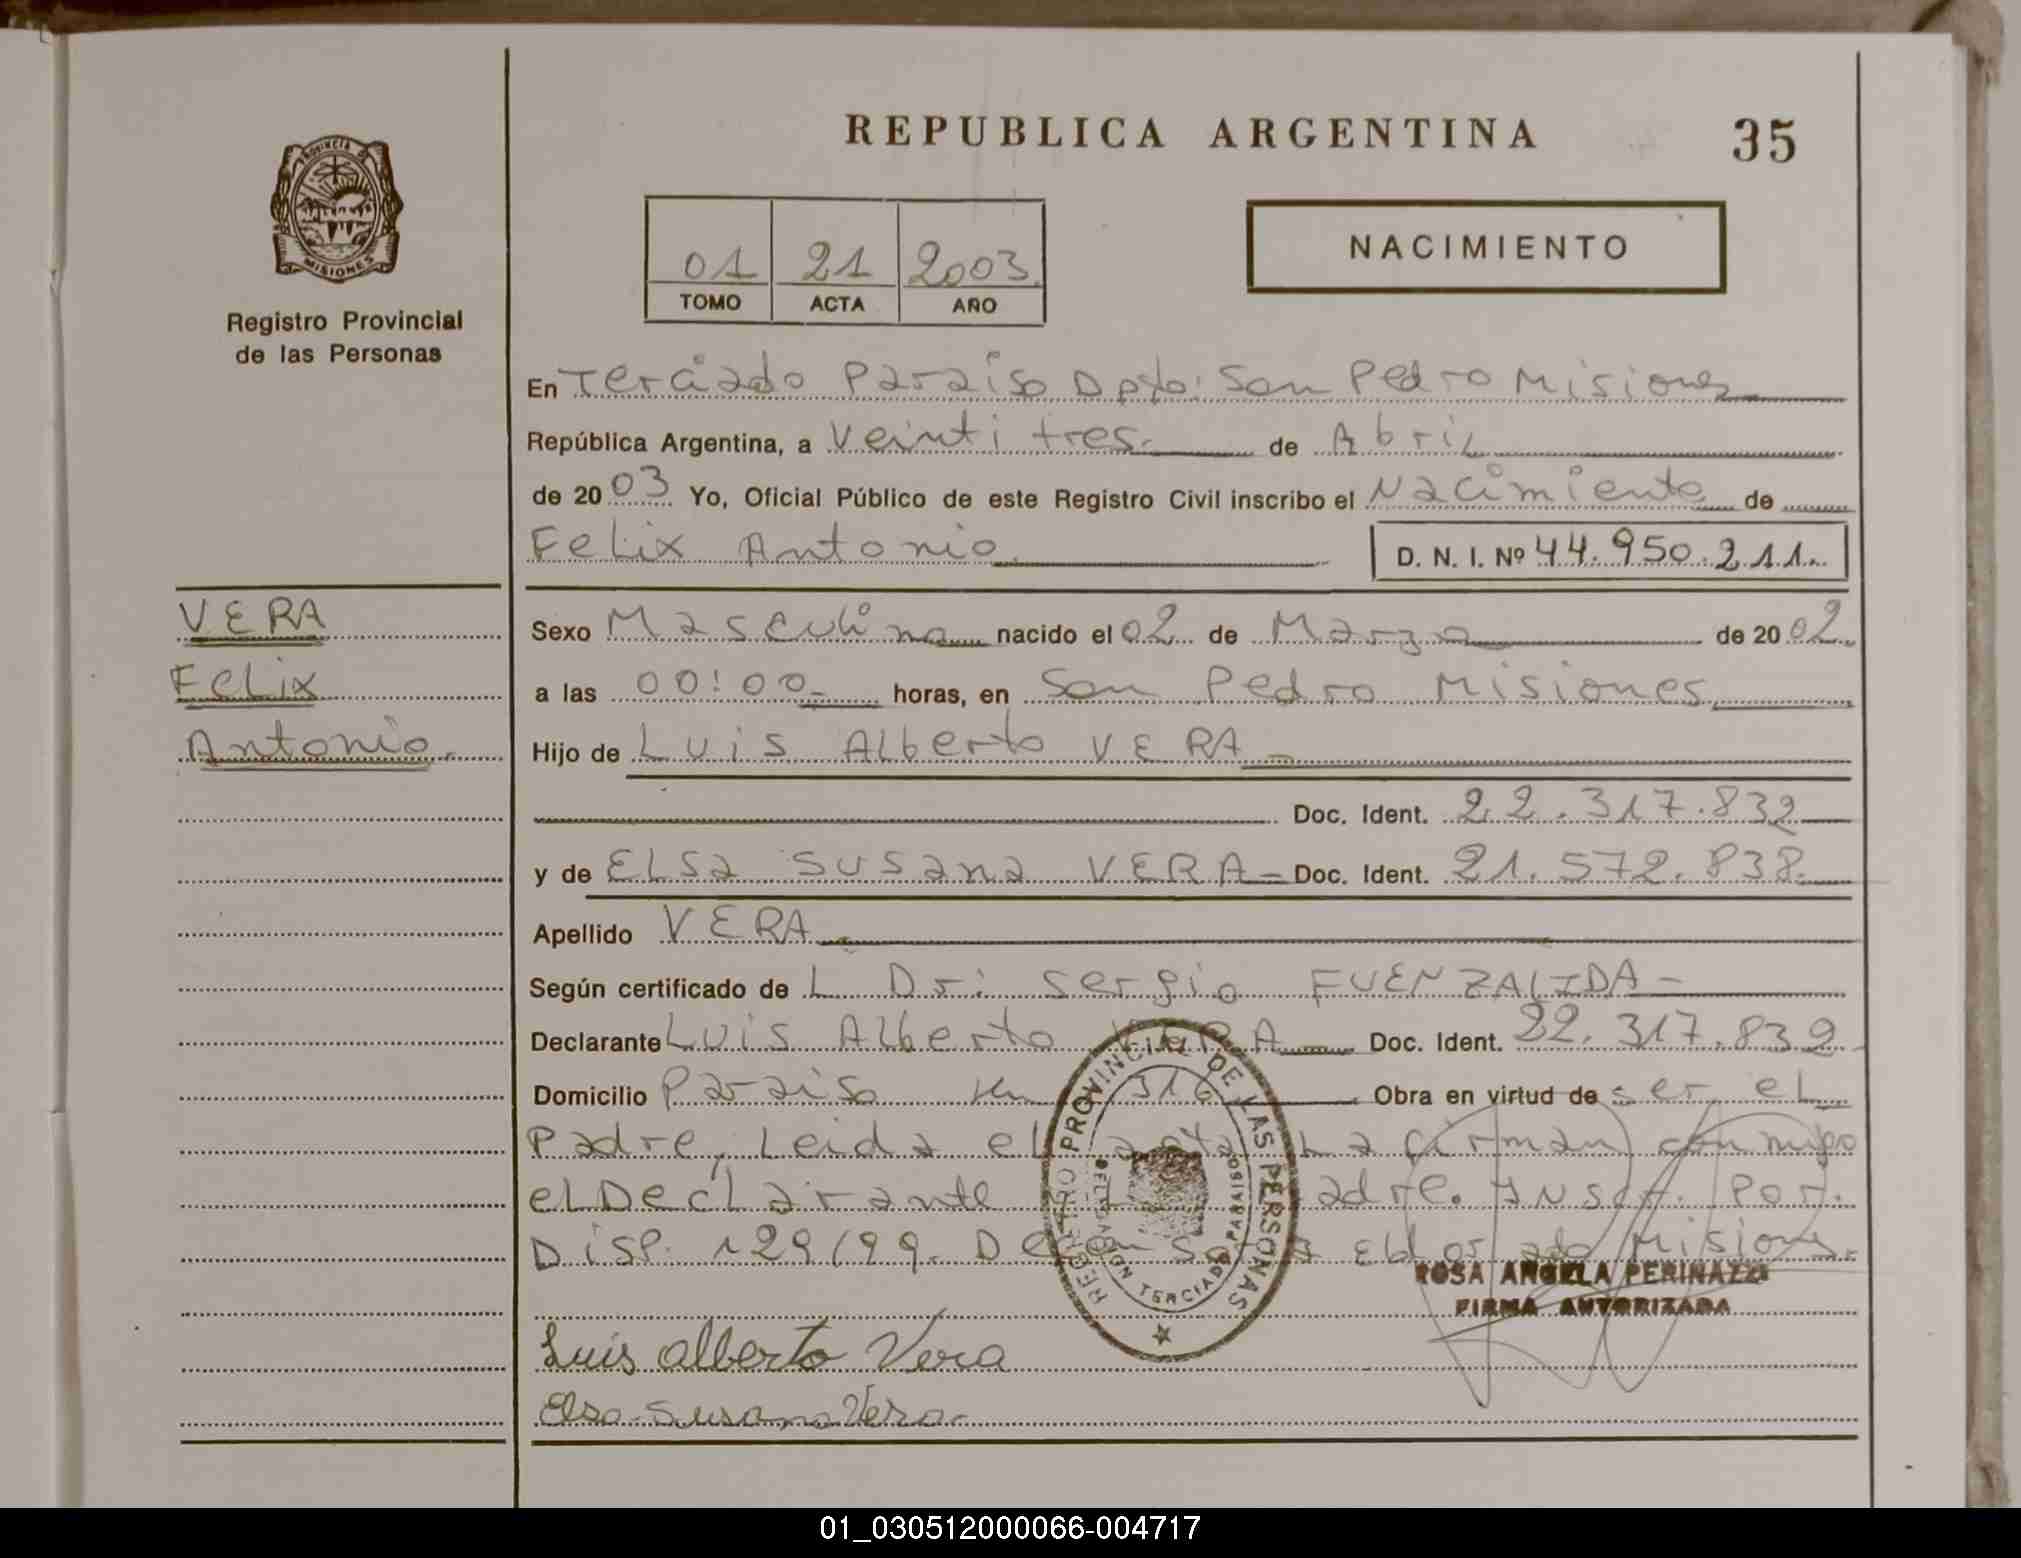 REPUBLICA ARGENTINA 35
PROVINCIA DE MISIONES
Registro Provincial
de las Personas
01 21 2003
TOMO ACTA AÑO
NACIMIENTO
En Terciado Paraiso Dpto: San Pedro Misiones
República Argentina, a Veinti tres. de Abril
de 2003 Yo, Oficial Público de este Registro Civil inscribo el Nacimiento de
Felix Antonio. D. N. I. Nº 44.950.211.
VERA
Felix
Antonio.
Sexo Masculino nacido el 02 de Marzo de 2002
a las 00:00 horas, en San Pedro Misiones
Hijo de Luis Alberto VERA
Doc. Ident. 22.317.832
y de ELSA SUSANA VERA Doc. Ident. 21.572.838.
Apellido VERA
Según certificado de L Dr: Sergio FUENZALIDA
Declarante Luis Alberto VERA Doc. Ident. 22.317.832
Domicilio Paraiso Km 316 Obra en virtud de ser el
Padre, Leida el acta La firman conmigo
el Declairante adre. Inscr. Por.
Disp. 129/99. Eldorado Misiones.
REGISTRO PROVINCIAL DE LAS PERSONAS
DELEGACION TERCIADO PARAISO
ROSA ANGELA PERINAZZI
FIRMA AUTORIZADA
Luis alberto Vera
Elsa Susana Vera
01_030512000066-004717